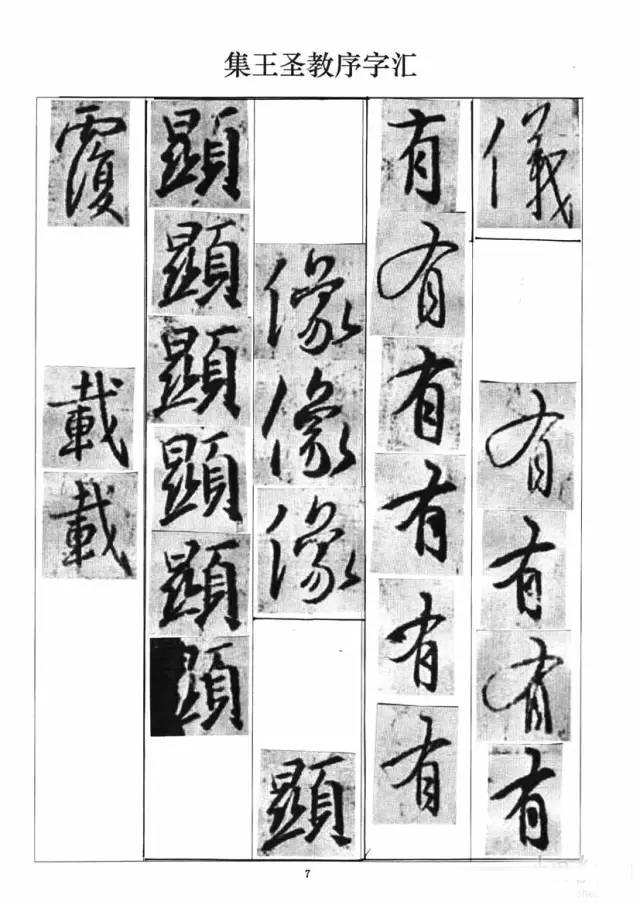 集王圣教序字汇
儀有有有有
有有有有有有
像像像顯
顯顯顯顯顯顯
覆載載
7